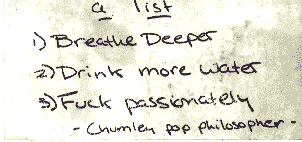 a list
1) Breathe Deeper
2) Drink more water
3) Fuck passionately
- Chumley pop philosopher -